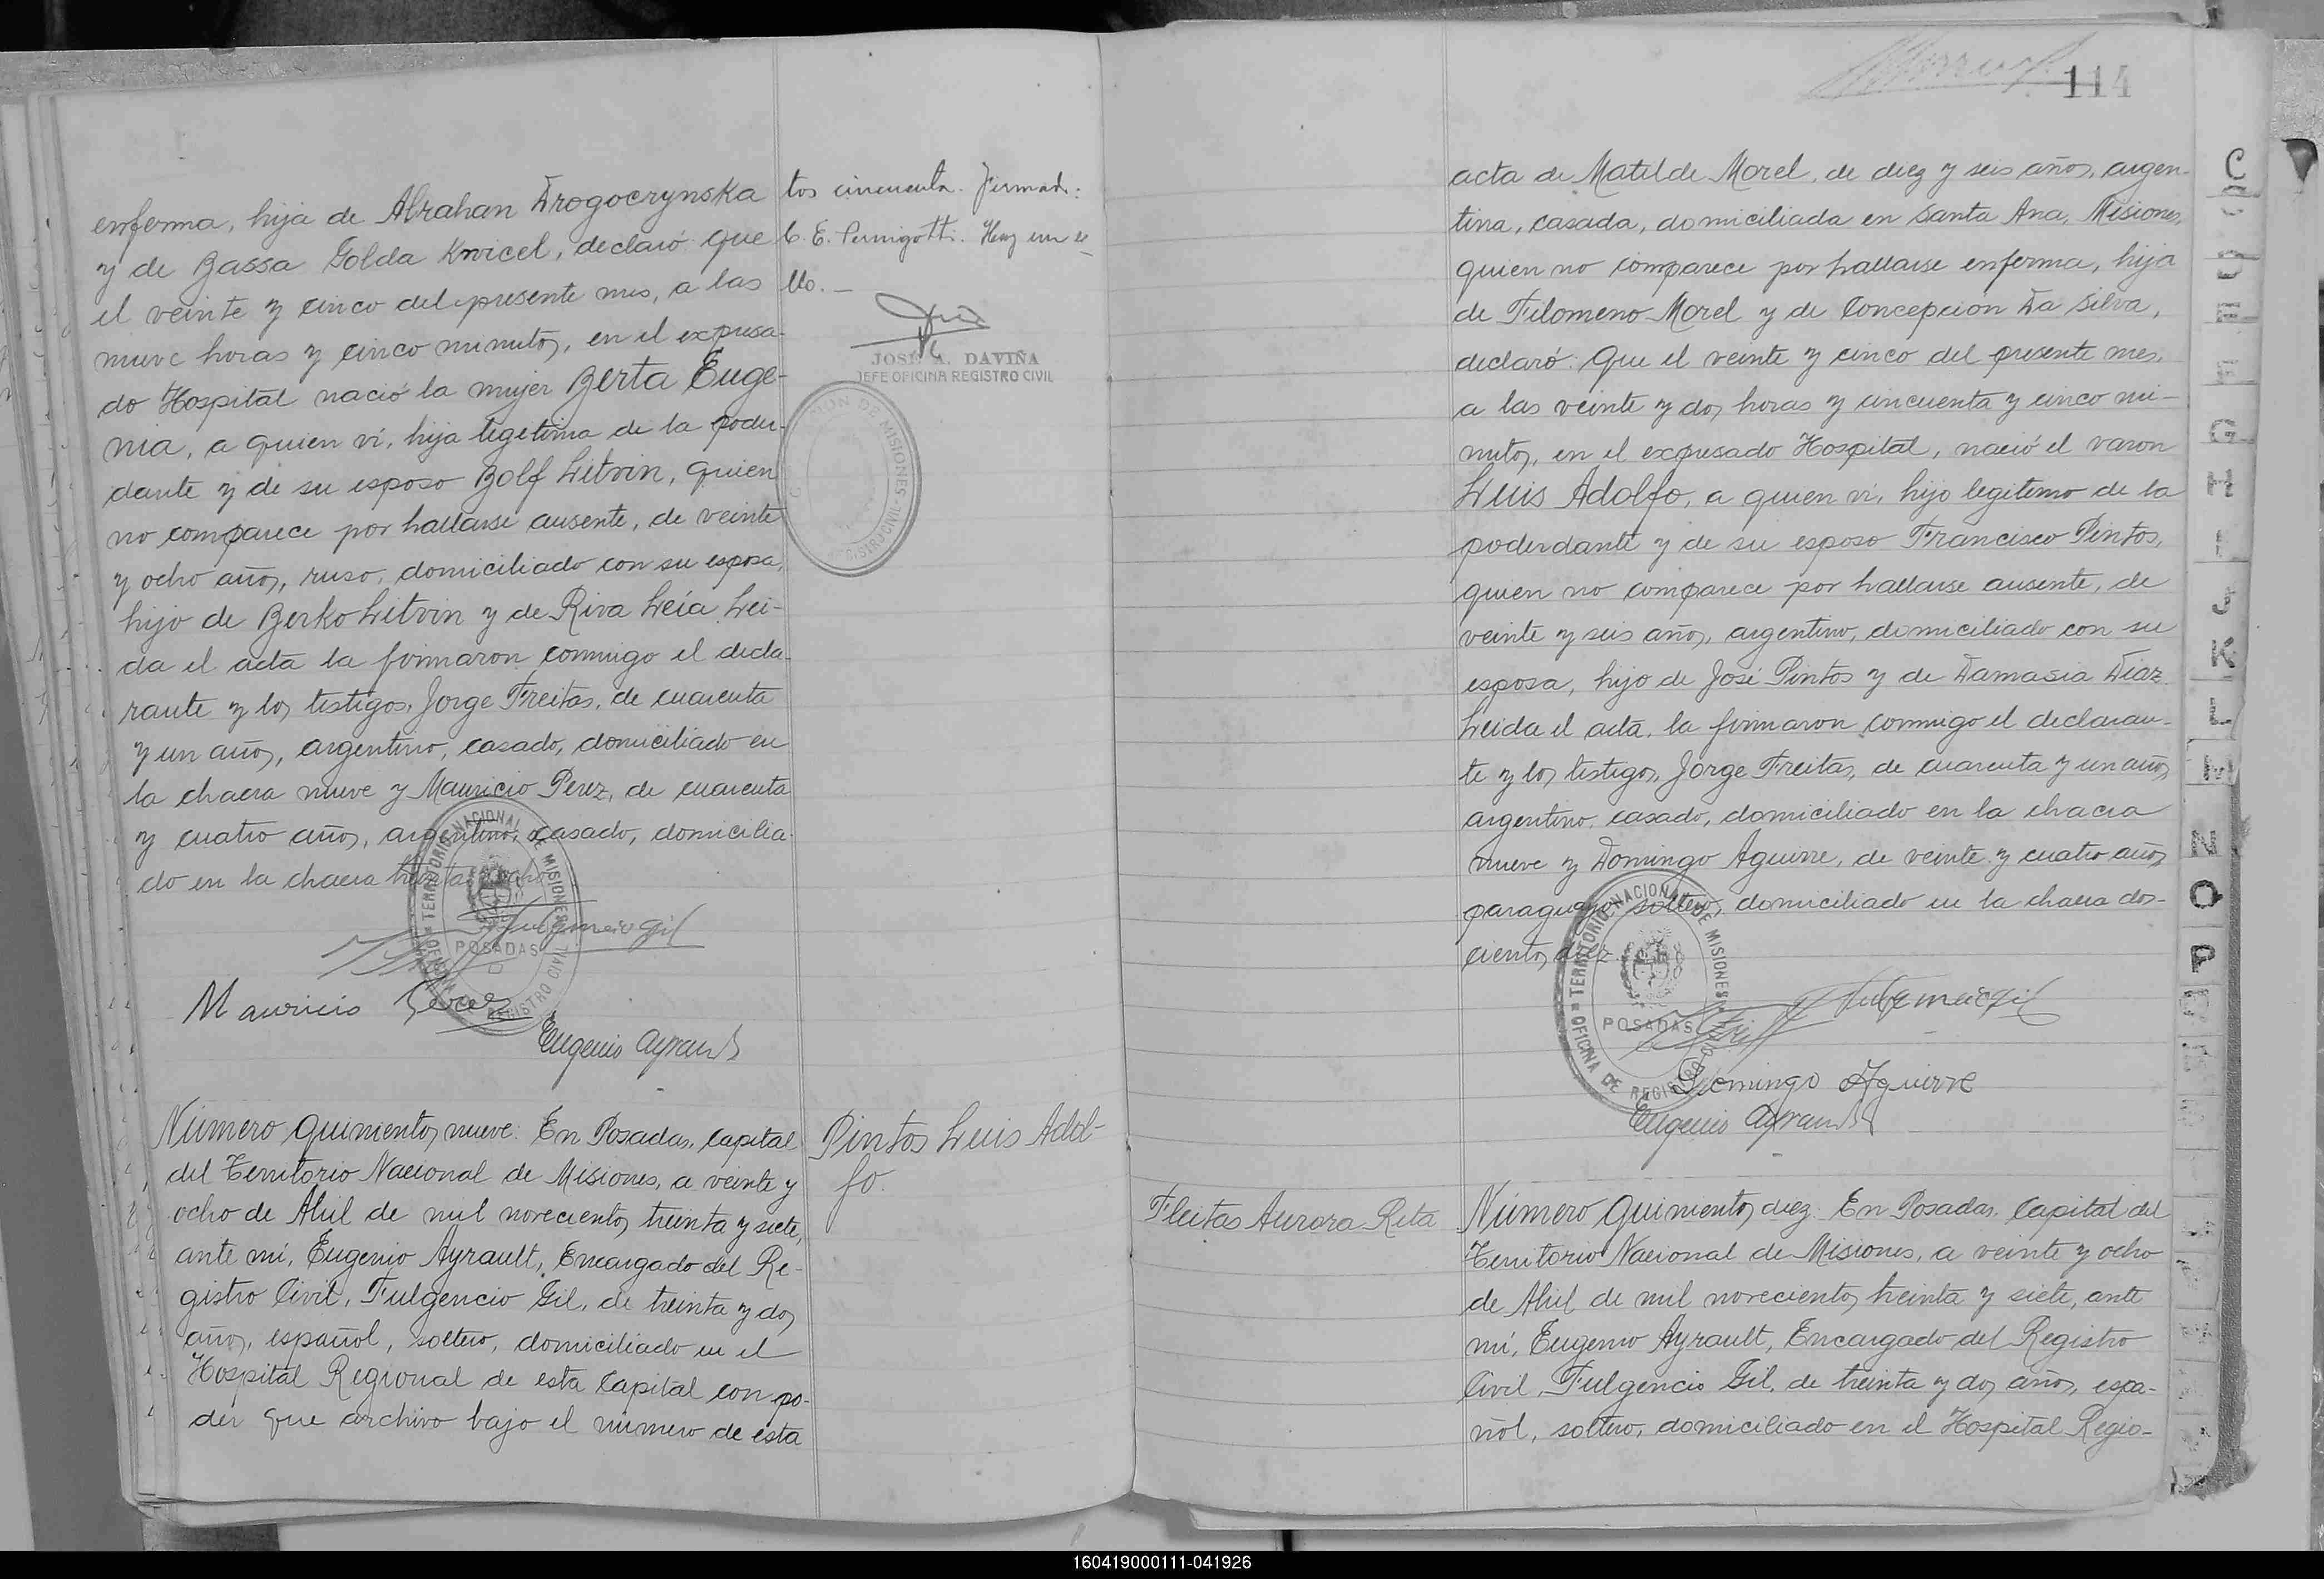 enferma, hija de Abrahan Drogocrynska
y de Bassa Golda Knicel, declaró: que
el veinte y cinco del presente mes, a las
nueve horas y cinco minutos, en el expresa-
do Hospital nació la mujer Berta Euge-
nia, a quien ví, hija legitima de la poder-
dante y de su esposo Bolf Litvin, quien
no comparece por hallarse ausente, de veinte
y ocho años, ruso, domiciliado con su esposa,
hijo de Berko Litvin y de Riva Leía. Lei-
da el acta la firmaron conmigo el decla-
rante y los testigos, Jorge Freitas, de cuarenta
y un años, argentino, casado, domiciliado en
la chacra nueve y Mauricio Perez, de cuarenta
y cuatro años, argentino, casado, domicilia-
do en la chacra treinta y ocho
Fulgencio Gil
Mauricio Perez
Eugenio Ayrault
OFICINA DE REGISTRO CIVIL TERRITORIO NACIONAL DE MISIONES
POSADAS
tos cincuenta. Firmado:
C. E. Pernigotti. Hay un se-
llo.
JOSE A. DAVIÑA
JEFE OFICINA REGISTRO CIVIL
Número quinientos nueve. En Posadas, Capital
del Territorio Nacional de Misiones, a veinte y
ocho de Abril de mil novecientos treinta y siete,
ante mí, Eugenio Ayrault, Encargado del Re-
gistro Civil, Fulgencio Gil, de treinta y dos
años, español, soltero, domiciliado en el
Hospital Regional de esta Capital con po-
der que archivo bajo el número de esta
Pintos Luis Adol-
fo.
114
acta de Matilde Morel, de diez y seis años, argen-
tina, casada, domiciliada en Santa Ana, Misiones,
quien no comparece por hallarse enferma, hija
de Filomeno Morel y de Concepción Da Silva,
declaró: Que el veinte y cinco del presente mes,
a las veinte y dos horas y cincuenta y cinco mi-
nutos, en el expresado Hospital, nació el varon
Luis Adolfo, a quien ví, hijo legitimo de la
poderdante y de su esposo Francisco Pintos,
quien no comparece por hallarse ausente, de
veinte y seis años, argentino, domiciliado con su
esposa, hijo de José Pintos y de Damasia Díaz.
Leida el acta, la firmaron conmigo el declaran-
te y los testigos, Jorge Freitas, de cuarenta y un años
argentino, casado, domiciliado en la chacra
nueve y Domingo Aguirre, de veinte y cuatro años,
paraguayo, soltero, domiciliado en la chacra dos-
cientos diez
Fulgencio Gil
Domingo Aguirre
Eugenio Ayrault
OFICINA DE REGISTRO CIVIL TERRITORIO NACIONAL DE MISIONES
POSADAS
Fleitas Aurora Rita
Número quinientos diez. En Posadas, Capital del
Territorio Nacional de Misiones, a veinte y ocho
de Abril de mil novecientos treinta y siete, ante
mí, Eugenio Ayrault, Encargado del Registro
Civil, Fulgencio Gil, de treinta y dos años, espa-
ñol, soltero, domiciliado en el Hospital Regio-
C
D
E
F
G
H
I
J
K
L
M
N
O
P
160419000111-041926